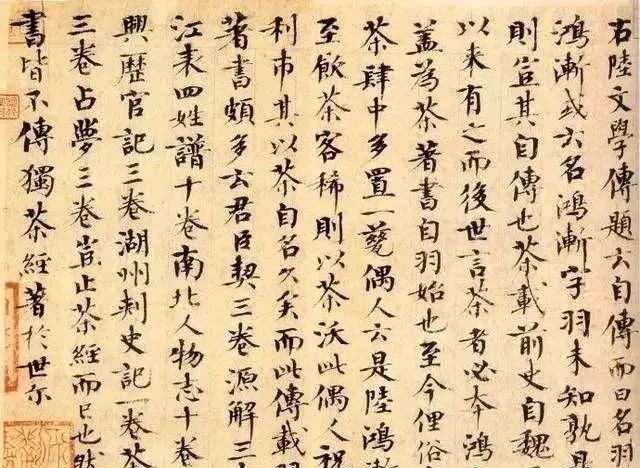 右陸文學傳題云自傳而曰名羽
鴻漸或云名鴻漸字羽未知孰是
則豈其自傳也茶載前史自魏
以來有之而後世言茶者必本鴻
蓋為茶著書自羽始也至今俚俗
茶肆中多置一甆偶人云是陸鴻漸
至飲茶客稀則以茶沃此偶人祝
利市其以茶自名久矣而此傳載羽
著書頗多云君臣契三卷源解三十
江表四姓譜十卷南北人物志十卷
興歷官記三卷湖州刺史記一卷茶
三卷占夢三卷豈止茶經而已也然
書皆不傳獨茶經著於世尔